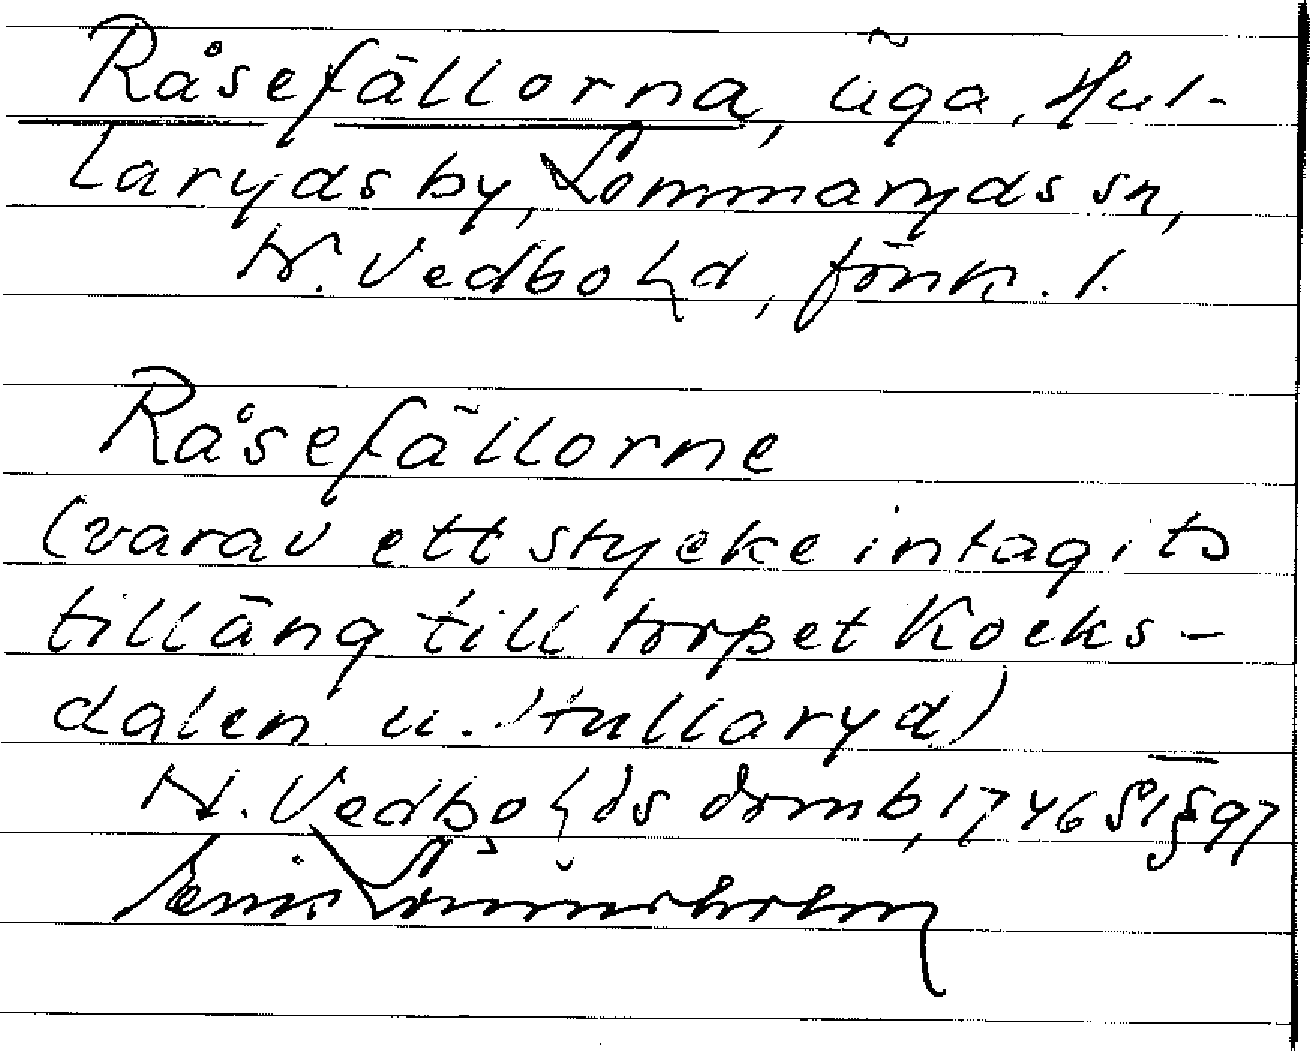 Råsefällorna, äga, Hul-
laryds by, Lommaryds sn,
N. Vedbo hd, Jönk. l.
Råsefällorne
(varav ett stycke intagits
till äng till torpet Kocks-
dalen u. Hullaryd)
N. Vedbo hds domb, 1746 § 97